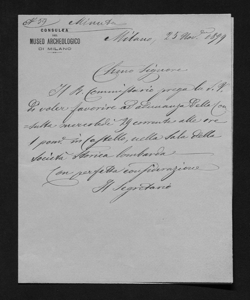 N. 59 Minuta
CONSULTA
DEL
MUSEO ARCHEOLOGICO
DI MILANO
Milano, 25 Nov. 1899
Signore
Il R. Commissario prega la S. V.
di voler favorire all'adunanza della Con
sulta mercoledì 29 corrente alle ore
1 pom. in Castello, nella Sala della
Società Storica lombarda.
Con perfetta considerazione
Il Segretario